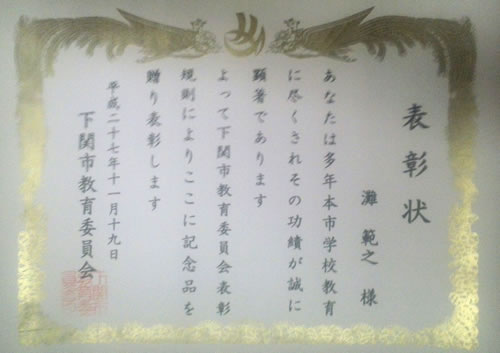 表彰状
灘 範之 様
あなたは多年本市学校教育
に尽くされその功績が誠に
顕著であります
よって下関市教育委員会表彰
規則によりここに記念品を
贈り表彰します
平成二十七年十一月十九日
下関市教育委員会